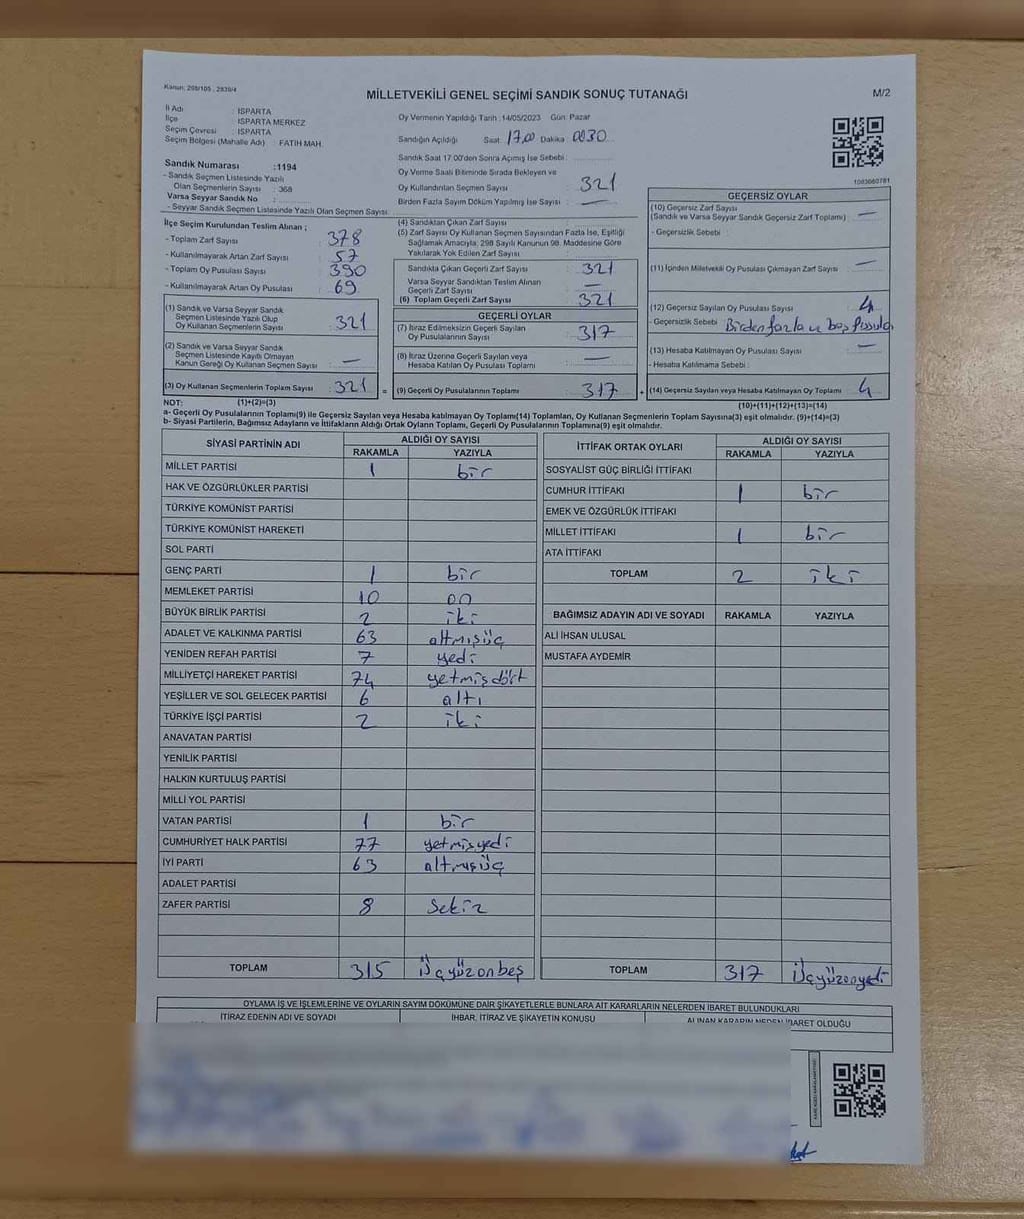 Kanun: 298/105 , 2839/4
MİLLETVEKİLİ GENEL SEÇİMİ SANDIK SONUÇ TUTANAĞI
M/2
İl Adı : ISPARTA
İlçe : ISPARTA MERKEZ
Seçim Çevresi : ISPARTA
Seçim Bölgesi (Mahalle Adı) : FATİH MAH.
Sandık Numarası :1194
- Sandık Seçmen Listesinde Yazılı
Olan Seçmenlerin Sayısı : 368
Varsa Seyyar Sandık No :
- Seyyar Sandık Seçmen Listesinde Yazılı Olan Seçmen Sayısı:
Oy Vermenin Yapıldığı Tarih :14/05/2023 Gün: Pazar
Sandığın Açıldığı Saat: 17.00 Dakika: 0030
Sandık Saat 17.00'den Sonra Açılmış İse Sebebi :
Oy Verme Saati Bitiminde Sırada Bekleyen ve
Oy Kullandırılan Seçmen Sayısı : 321
Birden Fazla Sayım Döküm Yapılmış İse Sayısı : —
1083060781
İlçe Seçim Kurulundan Teslim Alınan ;
- Toplam Zarf Sayısı : 378
- Kullanılmayarak Artan Zarf Sayısı : 57
- Toplam Oy Pusulası Sayısı : 390
- Kullanılmayarak Artan Oy Pusulası : 69
(1) Sandık ve Varsa Seyyar Sandık
Seçmen Listesinde Yazılı Olup
Oy Kullanan Seçmenlerin Sayısı : 321
(2) Sandık ve Varsa Seyyar Sandık
Seçmen Listesinde Kayıtlı Olmayan
Kanun Gereği Oy Kullanan Seçmen Sayısı : —
(3) Oy Kullanan Seçmenlerin Toplam Sayısı : 321 =
(4) Sandıktan Çıkan Zarf Sayısı :
(5) Zarf Sayısı Oy Kullanan Seçmen Sayısından Fazla İse, Eşitliği
Sağlamak Amacıyla; 298 Sayılı Kanunun 98. Maddesine Göre
Yakılarak Yok Edilen Zarf Sayısı :
Sandıkta Çıkan Geçerli Zarf Sayısı : 321
Varsa Seyyar Sandıktan Teslim Alınan
Geçerli Zarf Sayısı : —
(6) Toplam Geçerli Zarf Sayısı : 321
GEÇERLİ OYLAR
(7) İtiraz Edilmeksizin Geçerli Sayılan
Oy Pusulalarının Toplamı : 317
(8) İtiraz Üzerine Geçerli Sayılan veya
Hesaba Katılan Oy Pusulaları Toplamı : —
(9) Geçerli Oy Pusulalarının Toplamı : 317 +
GEÇERSİZ OYLAR
(10) Geçersiz Zarf Sayısı
(Sandık ve Varsa Seyyar Sandık Geçersiz Zarf Toplamı) : —
- Geçersizlik Sebebi :
(11) İçinden Milletvekili Oy Pusulası Çıkmayan Zarf Sayısı : —
(12) Geçersiz Sayılan Oy Pusulası Sayısı : 4
- Geçersizlik Sebebi : Birden fazla ve boş pusula
(13) Hesaba Katılmayan Oy Pusulası Sayısı : —
- Hesaba Katılmama Sebebi :
(14) Geçersiz Sayılan veya Hesaba Katılmayan Oy Toplamı : 4
NOT: (1)+(2)=(3) (10)+(11)+(12)+(13)=(14)
a- Geçerli Oy Pusulalarının Toplamı(9) ile Geçersiz Sayılan veya Hesaba katılmayan Oy Toplamı(14) Toplamları, Oy Kullanan Seçmenlerin Toplam Sayısına(3) eşit olmalıdır. (9)+(14)=(3)
b- Siyasi Partilerin, Bağımsız Adayların ve İttifakların Aldığı Ortak Oyların Toplamı, Geçerli Oy Pusulalarının Toplamına(9) eşit olmalıdır.
SİYASİ PARTİNİN ADI ALDIĞI OY SAYISI
RAKAMLA YAZIYLA
MİLLET PARTİSİ 1 bir
HAK VE ÖZGÜRLÜKLER PARTİSİ
TÜRKİYE KOMÜNİST PARTİSİ
TÜRKİYE KOMÜNİST HAREKETİ
SOL PARTİ
GENÇ PARTİ 1 bir
MEMLEKET PARTİSİ 10 on
BÜYÜK BİRLİK PARTİSİ 2 iki
ADALET VE KALKINMA PARTİSİ 63 altmışüç
YENİDEN REFAH PARTİSİ 7 yedi
MİLLİYETÇİ HAREKET PARTİSİ 74 yetmişdört
YEŞİLLER VE SOL GELECEK PARTİSİ 6 altı
TÜRKİYE İŞÇİ PARTİSİ 2 iki
ANAVATAN PARTİSİ
YENİLİK PARTİSİ
HALKIN KURTULUŞ PARTİSİ
MİLLİ YOL PARTİSİ
VATAN PARTİSİ 1 bir
CUMHURİYET HALK PARTİSİ 77 yetmişyedi
İYİ PARTİ 63 altmışüç
ADALET PARTİSİ
ZAFER PARTİSİ 8 sekiz
TOPLAM 315 Üçyüzonbeş
İTTİFAK ORTAK OYLARI ALDIĞI OY SAYISI
RAKAMLA YAZIYLA
SOSYALİST GÜÇ BİRLİĞİ İTTİFAKI
CUMHUR İTTİFAKI 1 bir
EMEK VE ÖZGÜRLÜK İTTİFAKI
MİLLET İTTİFAKI 1 bir
ATA İTTİFAKI
TOPLAM 2 iki
BAĞIMSIZ ADAYIN ADI VE SOYADI RAKAMLA YAZIYLA
ALİ İHSAN ULUSAL
MUSTAFA AYDEMİR
TOPLAM 317 Üçyüzonyedi
OYLAMA İŞ VE İŞLEMLERİNE VE OYLARIN SAYIM DÖKÜMÜNE DAİR ŞİKAYETLERLE BUNLARA AİT KARARLARIN NELERDEN İBARET BULUNDUKLARI
İTİRAZ EDENİN ADI VE SOYADI İHBAR, İTİRAZ VE ŞİKAYETİN KONUSU ALINAN KARARIN NEDEN İBARET OLDUĞU